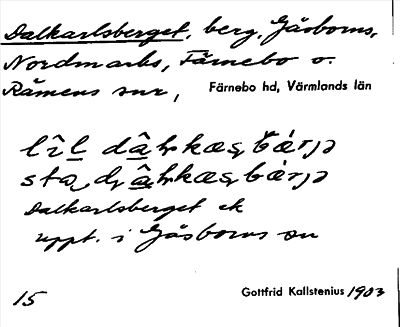 Dalkarlsberget, berg, Gåsborns,
Nordmarks, Färnebo o.
Rämens snr,
Färnebo hd, Värmlands län
Dalkarlsberget ek
uppt. i Gåsborns sn
15
Gottfrid Kallstenius 1903